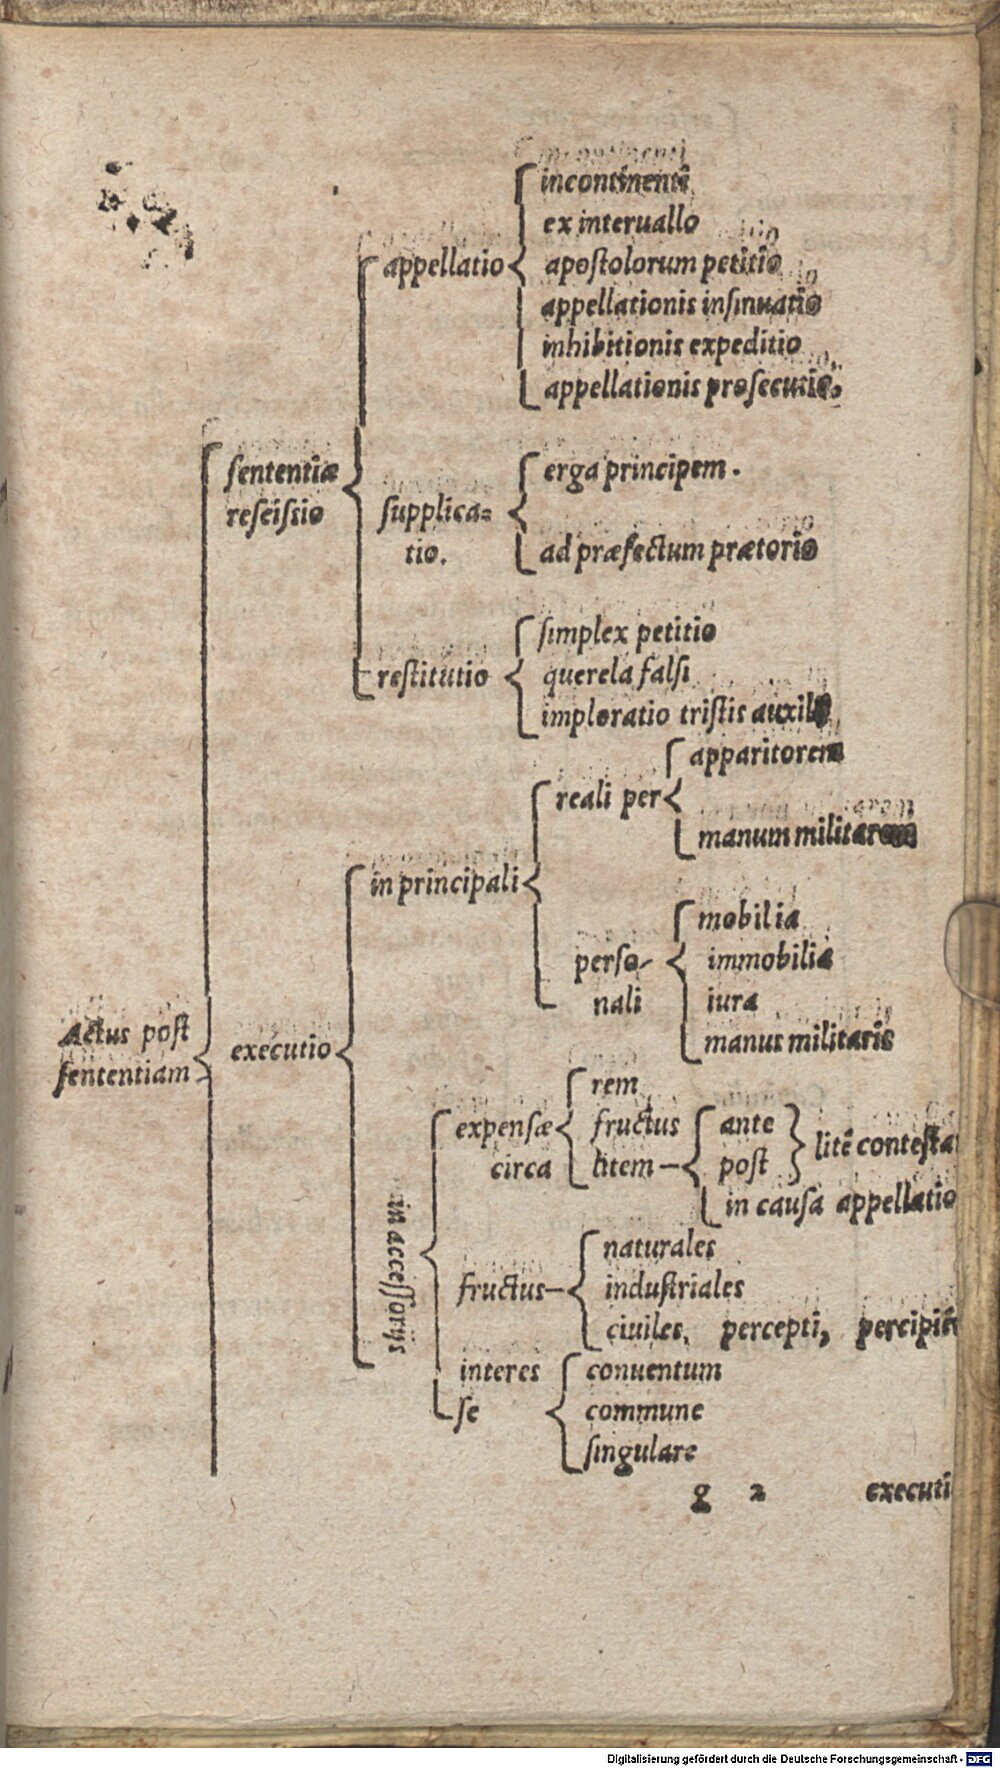 incontinenti
ex interuallo
appellatio
apoſtolorum petitio
appellationis inſinuatio
inhibitionis expeditio
appellationis proſecutio.
ſententiæ
reſciſsio
erga principem.
ſupplica=
tio.
ad præfectum prætorio
ſimplex petitio
reſtitutio
querela falſi
imploratio triſtis
apparitorem
reali per
manum militarem
in principali
mobilia
perſo-
nali
immobilia
iura
manus militaris
Actus poſt
ſententiam
executio
in acceſſorijs
expenſæ
circa
rem
fructus
litem
ante
poſt
litē conteſta
in cauſa appellatio
fructus
naturales
induſtriales
ciuiles, percepti,
interes
ſe
conuentum
commune
ſingulare
g 2 executi
Digitalisierung gefördert durch die Deutsche Forschungsgemeinschaft - DFG